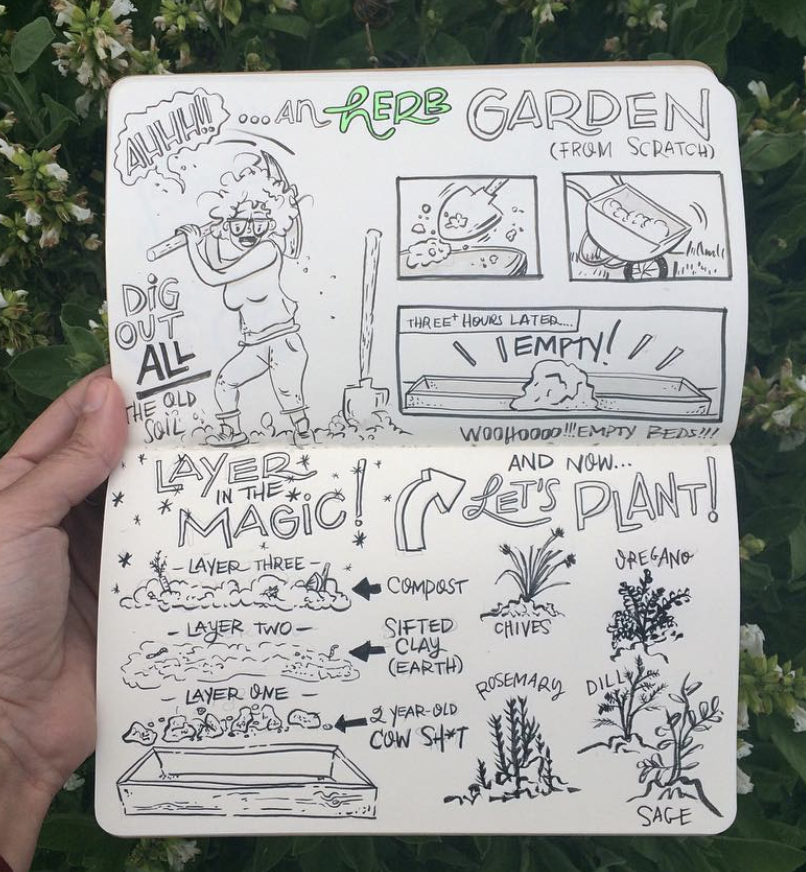 AHHH!!!
...AN HERB GARDEN
(FROM SCRATCH)
DIG
OUT
ALL
THE OLD
SOIL
THREE+ HOURS LATER....
EMPTY!
WOOHOOOO!!! EMPTY BEDS!!!
LAYER
IN THE
MAGIC!
- LAYER THREE -
COMPOST
- LAYER TWO -
SIFTED
CLAY
(EARTH)
- LAYER ONE -
2 YEAR-OLD
COW SH*T
AND NOW...
LET'S PLANT!
CHIVES
OREGANO
ROSEMARY
DILL
SAGE